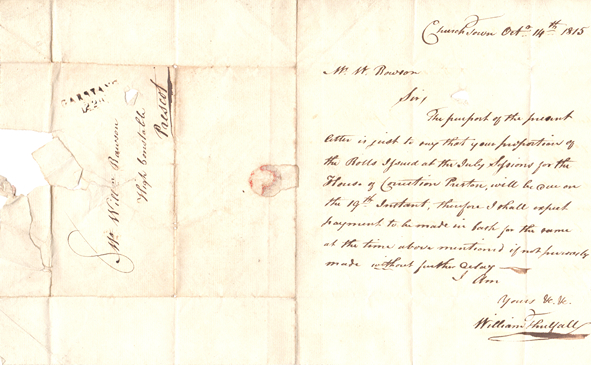 Church Town Octr. 14th 1815
Mr. W. Rawson
Sir,
The purport of the present
letter is just to say that your proportion of
the Rolls Issued at the July Sessions for the
House of Correction Preston, will be due on
the 19th Instant, therefore I shall expect
payment to be made in cash for the same
at the time above mentioned if not previously
made without further delay
I Am
Yours &c. &c.
William Threlfall
GARSTANG
Mr. Willm. Rawson
High Constable
Prescot